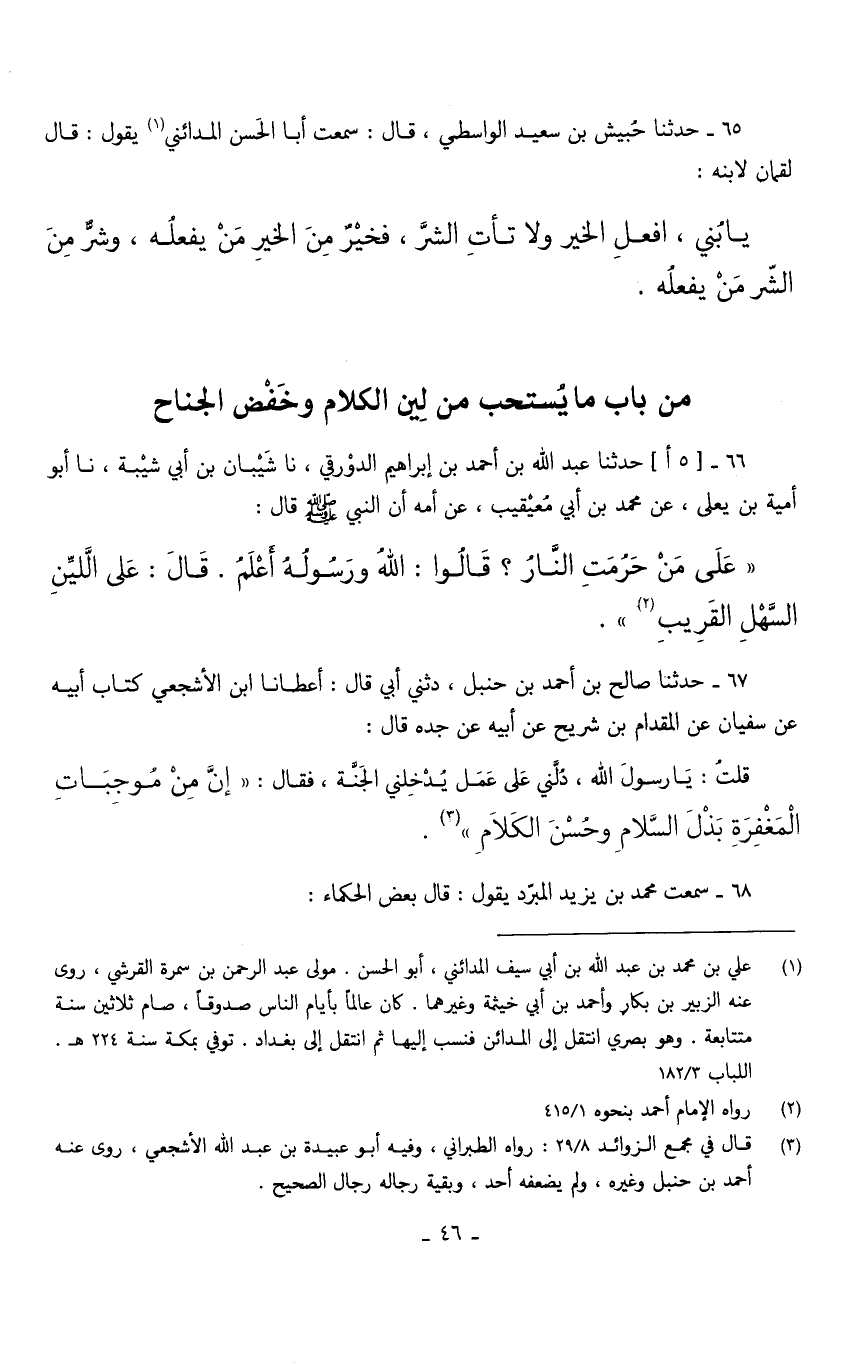 ٦٥ ـ حدثنا حُبيش بن سعيد الواسطي ، قال : سمعت أبا الحَسن المدائني(١) يقول : قال
لقمان لابنه :
يابُني ، افعلِ الخير ولا تأتِ الشرَّ ، فخيْرٌ مِنَ الخيرِ مَنْ يفعلُه ، وشرٌّ مِنَ
الشّر مَنْ يفعلُه .
من باب ما يُستحب من لِين الكلام وخَفْض الجناح
٦٦ ـ [ ٥ أ ] حدثنا عبد الله بن أحمد بن إبراهيم الدوْرقي ، نا شَيْبان بن أبي شيْبة ، نا أبو
أمية بن يعلى ، عن محمد بن أبي مُعيْقيب ، عن أمه أن النبي ﷺ قال :
« عَلَى مَنْ حَرُمَتِ النَّارُ ؟ قَالُوا : اللهُ ورَسُولُهُ أَعْلَمُ . قَالَ : عَلى الَّليِّنِ
السَّهْلِ القَرِيبِ(٢) » .
٦٧ ـ حدثنا صالح بن أحمد بن حنبل ، دثني أبي قال : أعطانا ابن الأشجعي كتاب أبيه
عن سفيان عن المقدام بن شريح عن أبيه عن جده قال :
قلتُ : يَارسولَ الله ، دُلَّني عَلى عَمَل يُدْخلِني الجَنَّة ، فقال : « إنَّ مِنْ مُوجِبَاتِ
الْمَغْفِرَةِ بَذْلَ السَّلامِ وحُسْنَ الكَلاَمِ »(٣) .
٦٨ ـ سمعت محمد بن يزيد المبرّد يقول : قال بعض الحكماء :
(١) علي بن محمد بن عبد الله بن أبي سيف المدائني ، أبو الحسن . مولى عبد الرحمن بن سمرة القرشي ، روى
عنه الزبير بن بكار وأحمد بن أبي خيثمة وغيرهما . كان عالماً بأيام الناس صدوقاً ، صام ثلاثين سنة
متتابعة . وهو بصري انتقل إلى المدائن فنسب إليها ثم انتقل إلى بغداد . توفي بمكة سنة ٢٢٤ هـ .
اللباب ١٨٢/٣
(٢) رواه الإمام أحمد بنحوه ٤١٥/١
(٣) قال في مجمع الزوائد ٢٩/٨ : رواه الطبراني ، وفيه أبو عبيدة بن عبد الله الأشجعي ، روى عنه
أحمد بن حنبل وغيره ، ولم يضعفه أحد ، وبقية رجاله رجال الصحيح .
ـ ٤٦ ـ